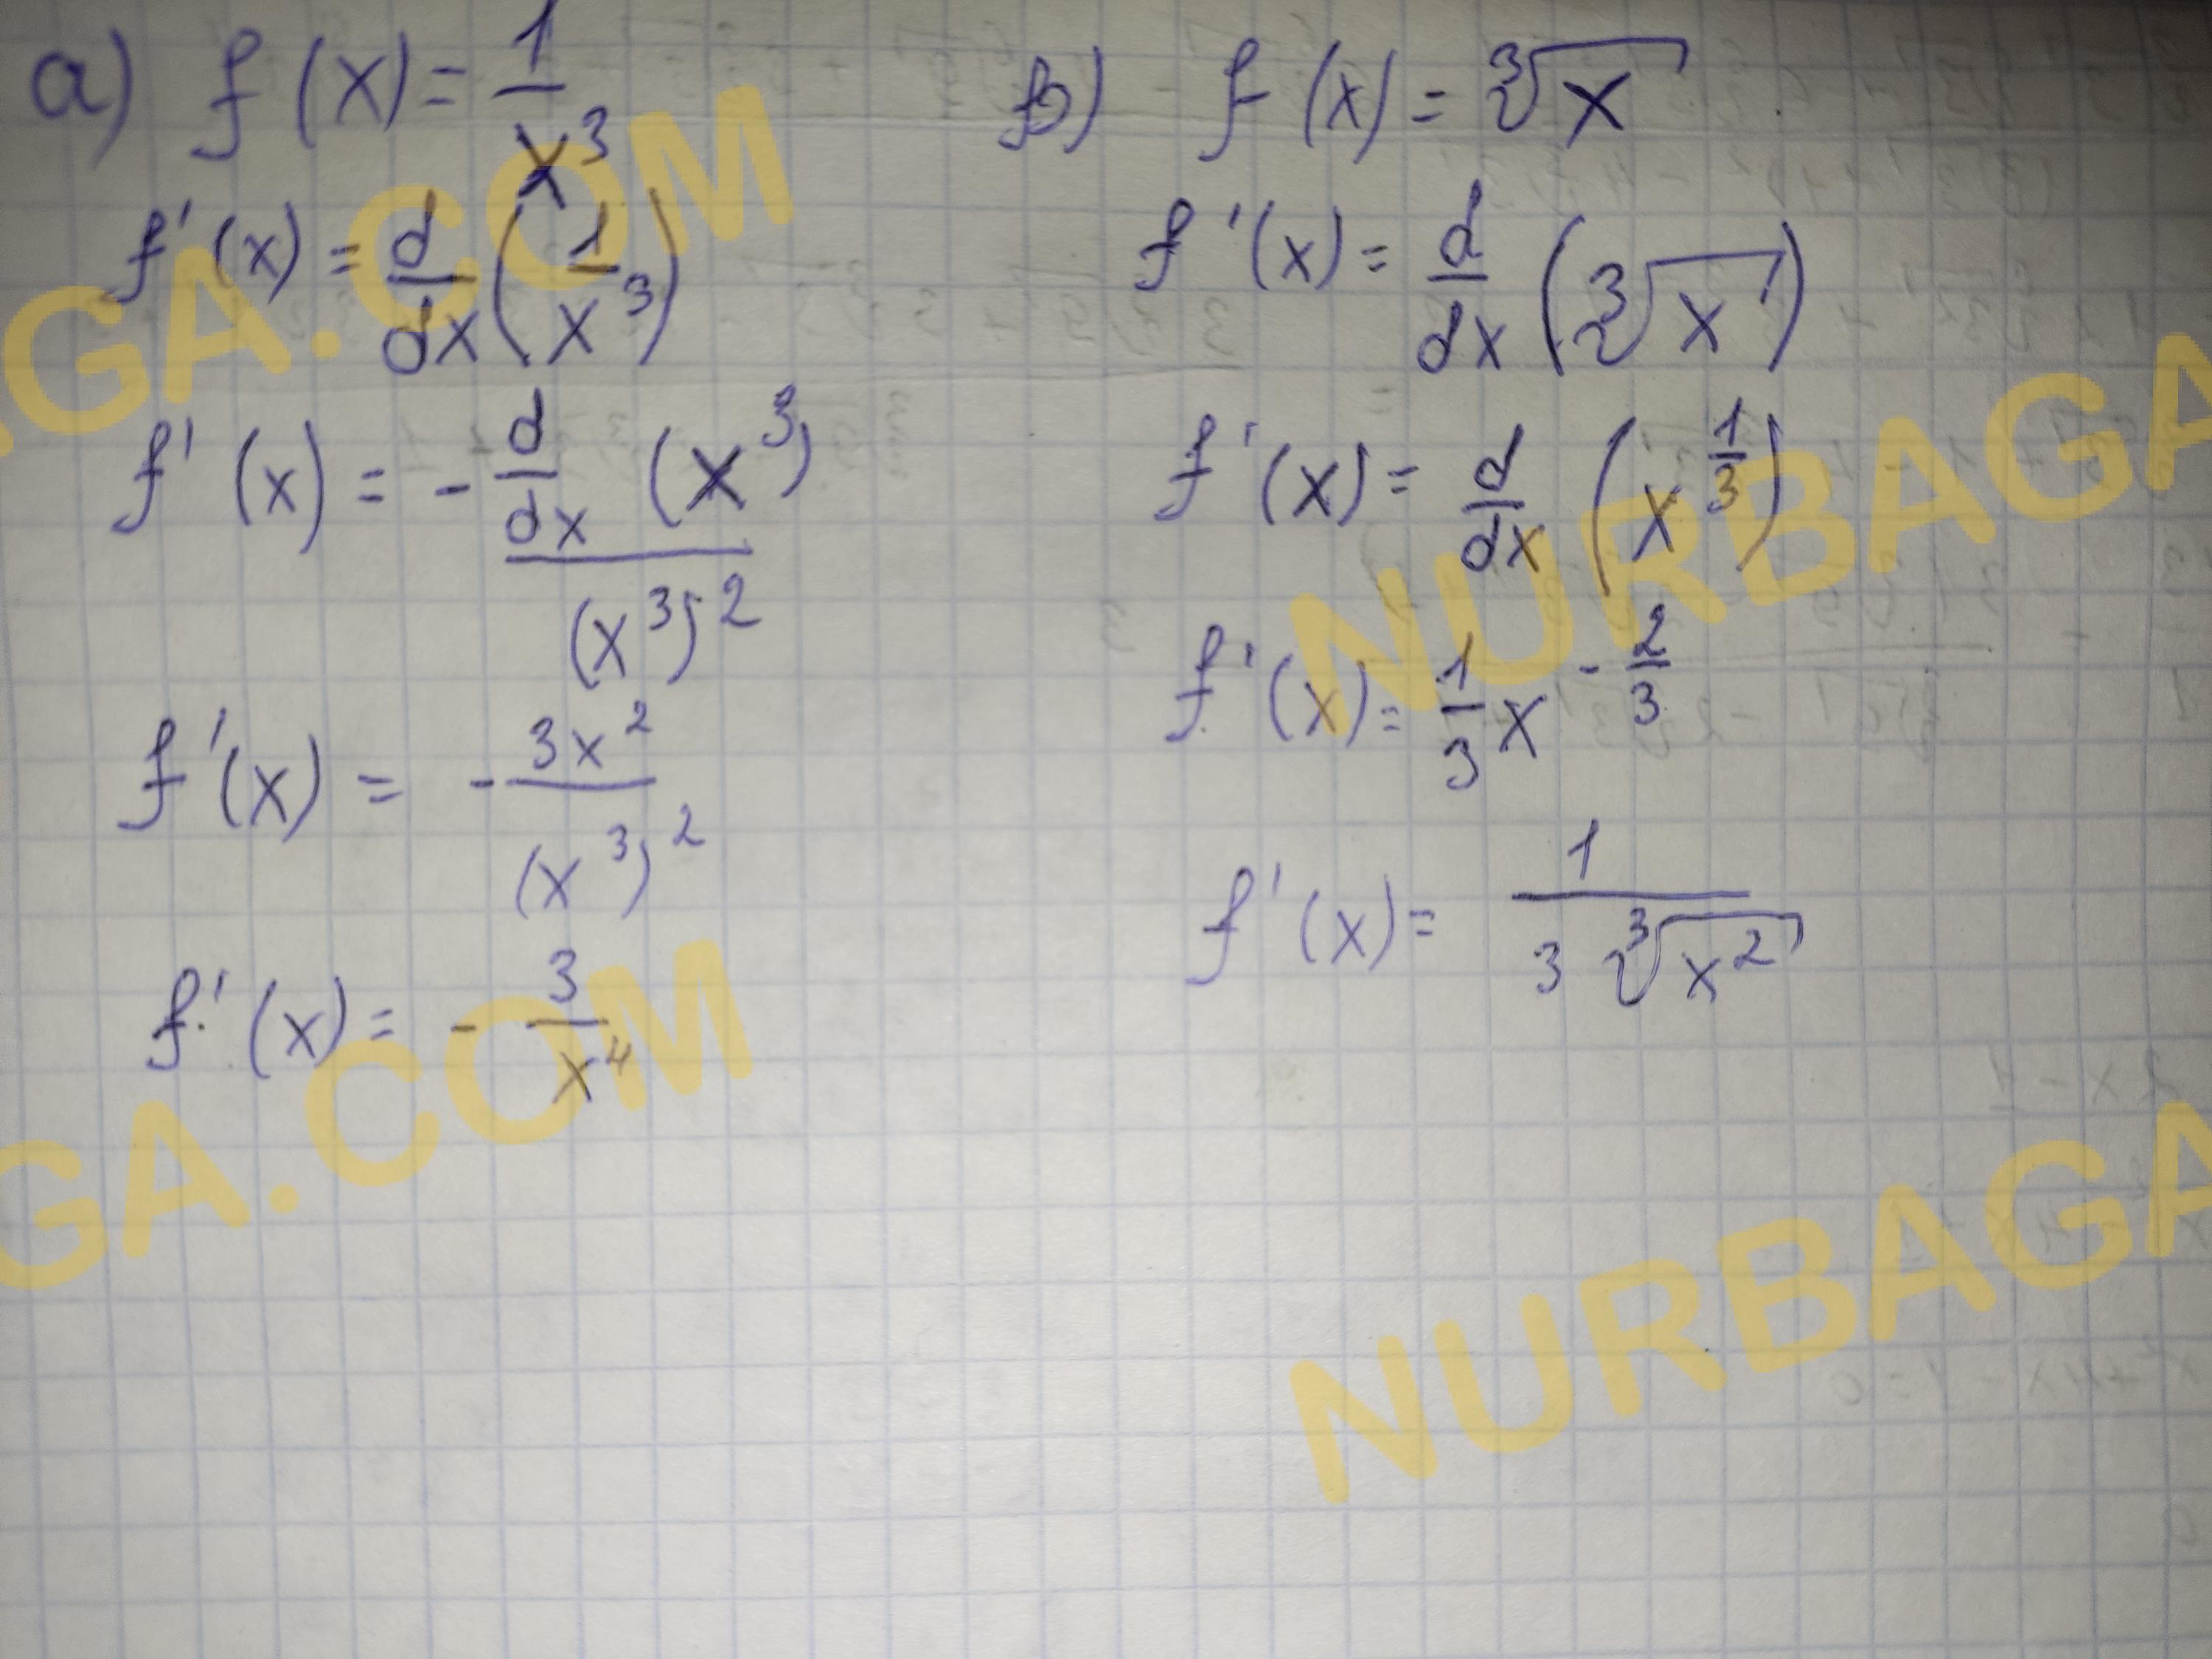 a) f(x) = 1/x³
f'(x) = d/dx (1/x³)
f'(x) = - d/dx (x³) / (x³)²
f'(x) = - 3x²/(x³)²
f'(x) = - 3/x⁴
b) f(x) = ∛x
f'(x) = d/dx (∛x)
f'(x) = d/dx (x^(1/3))
f'(x) = 1/3 x^(-2/3)
f'(x) = 1/(3 ∛x²)
GA.COM
NURBAGA
GA.COM
NURBAGA